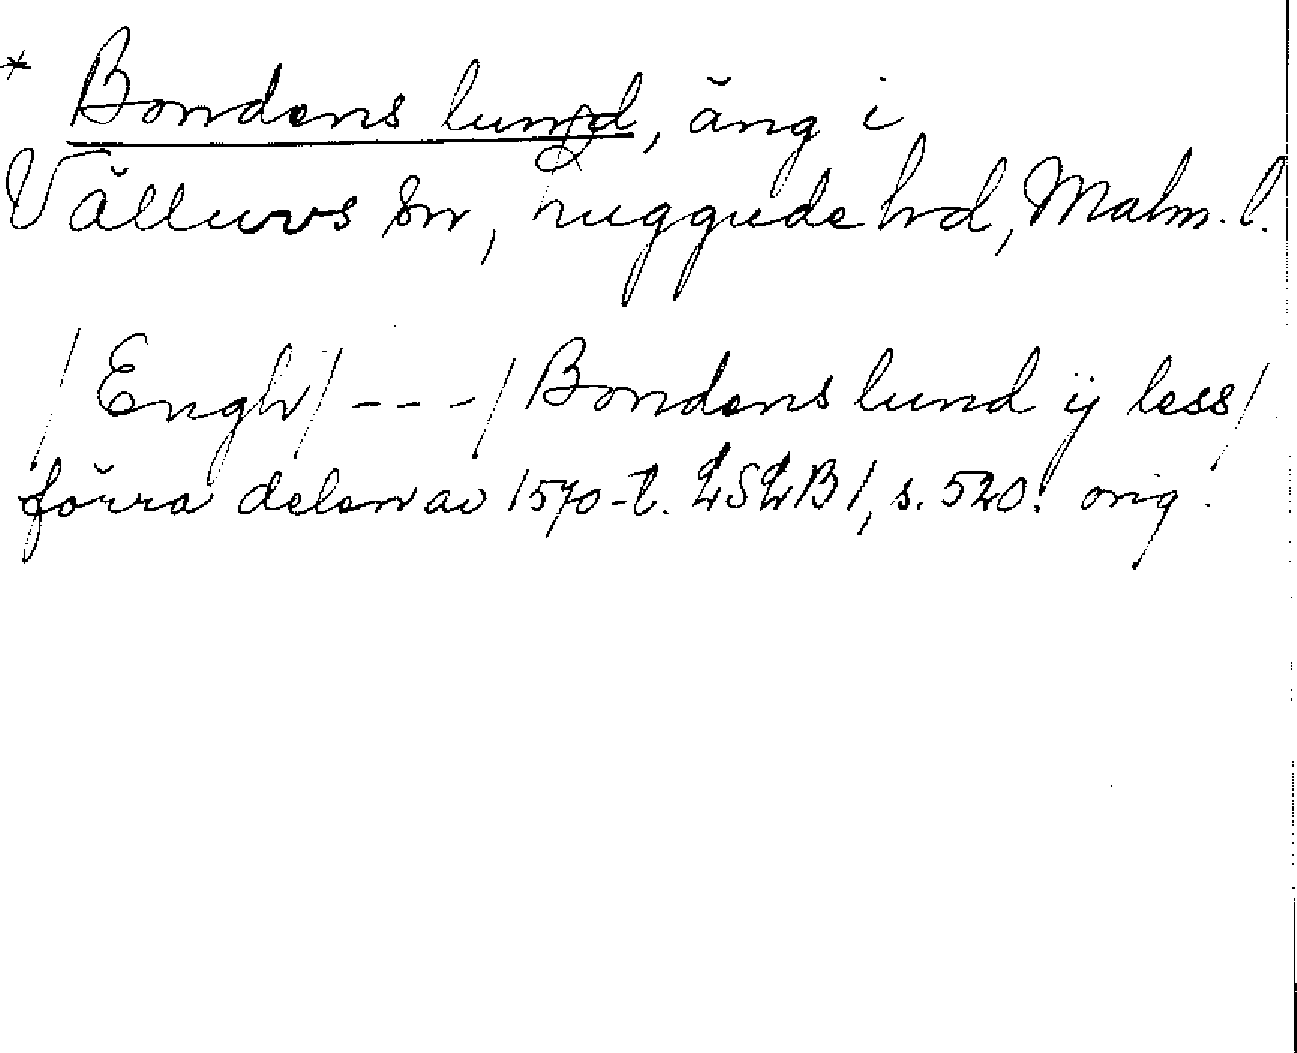 * Bondens lund, äng i
Välluvs sn, Luggude hd, Malm. l.
/Engh/ - - - / Bondens lund ij less/
förra delen av 1570-t. LSLB 1, s. 520. orig.